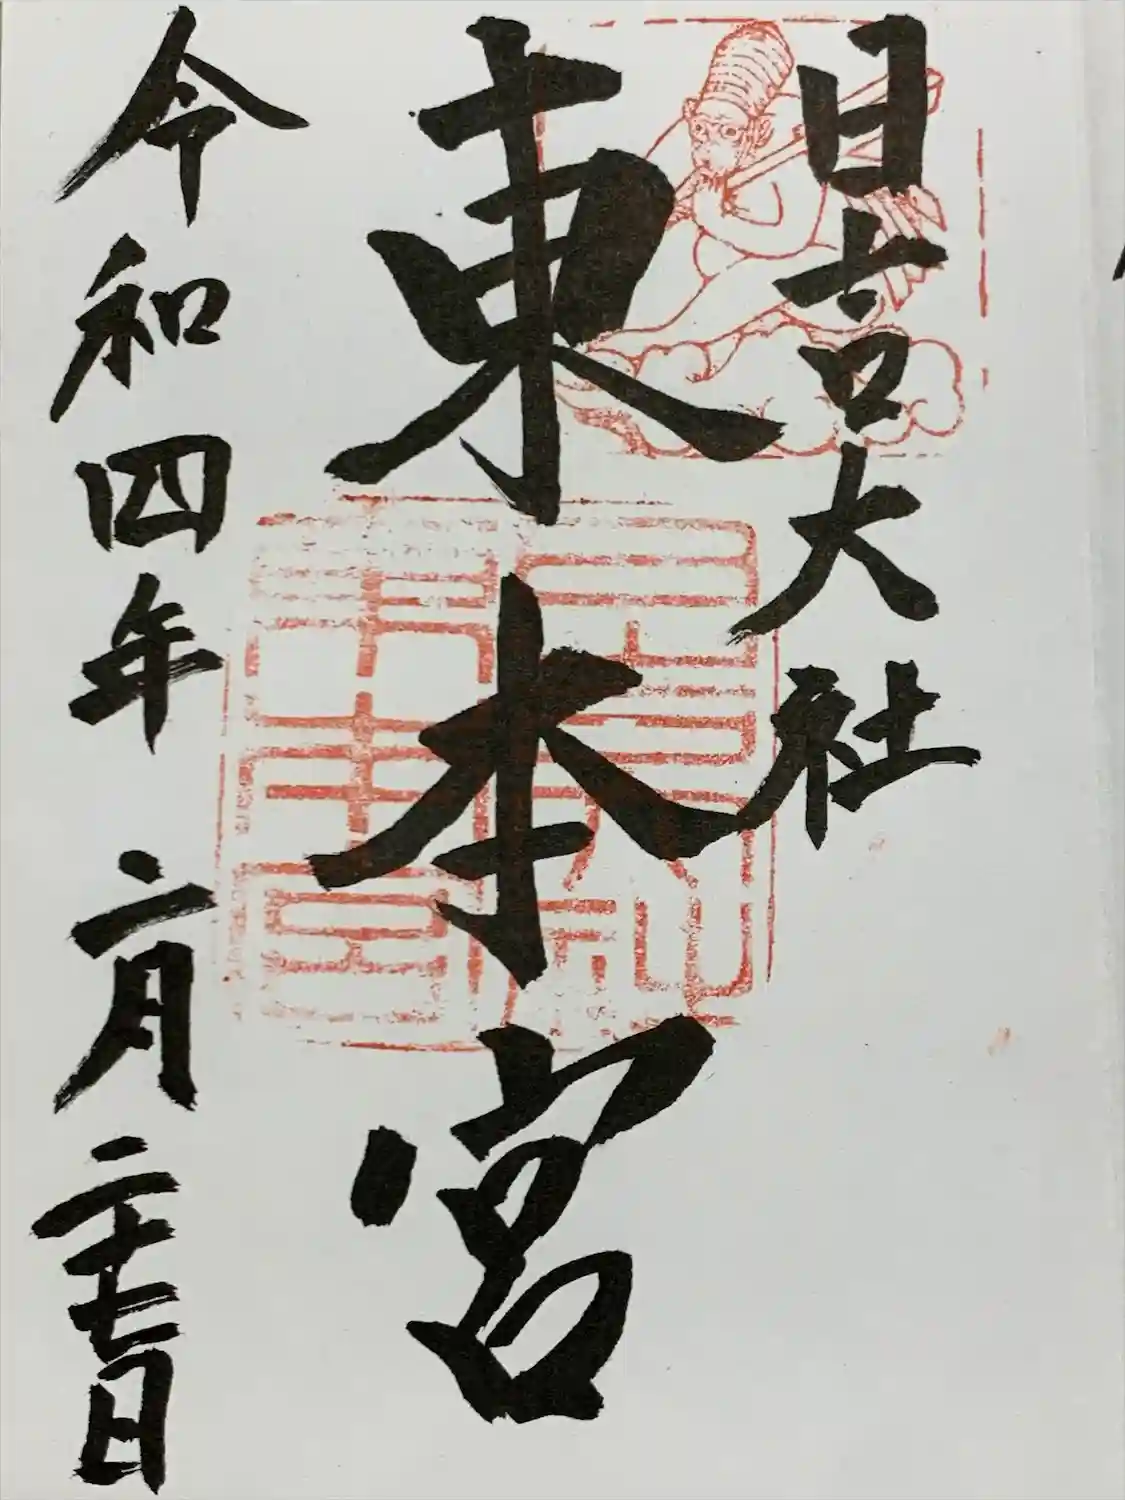 日吉大社
東本宮
令和四年二月二十七日